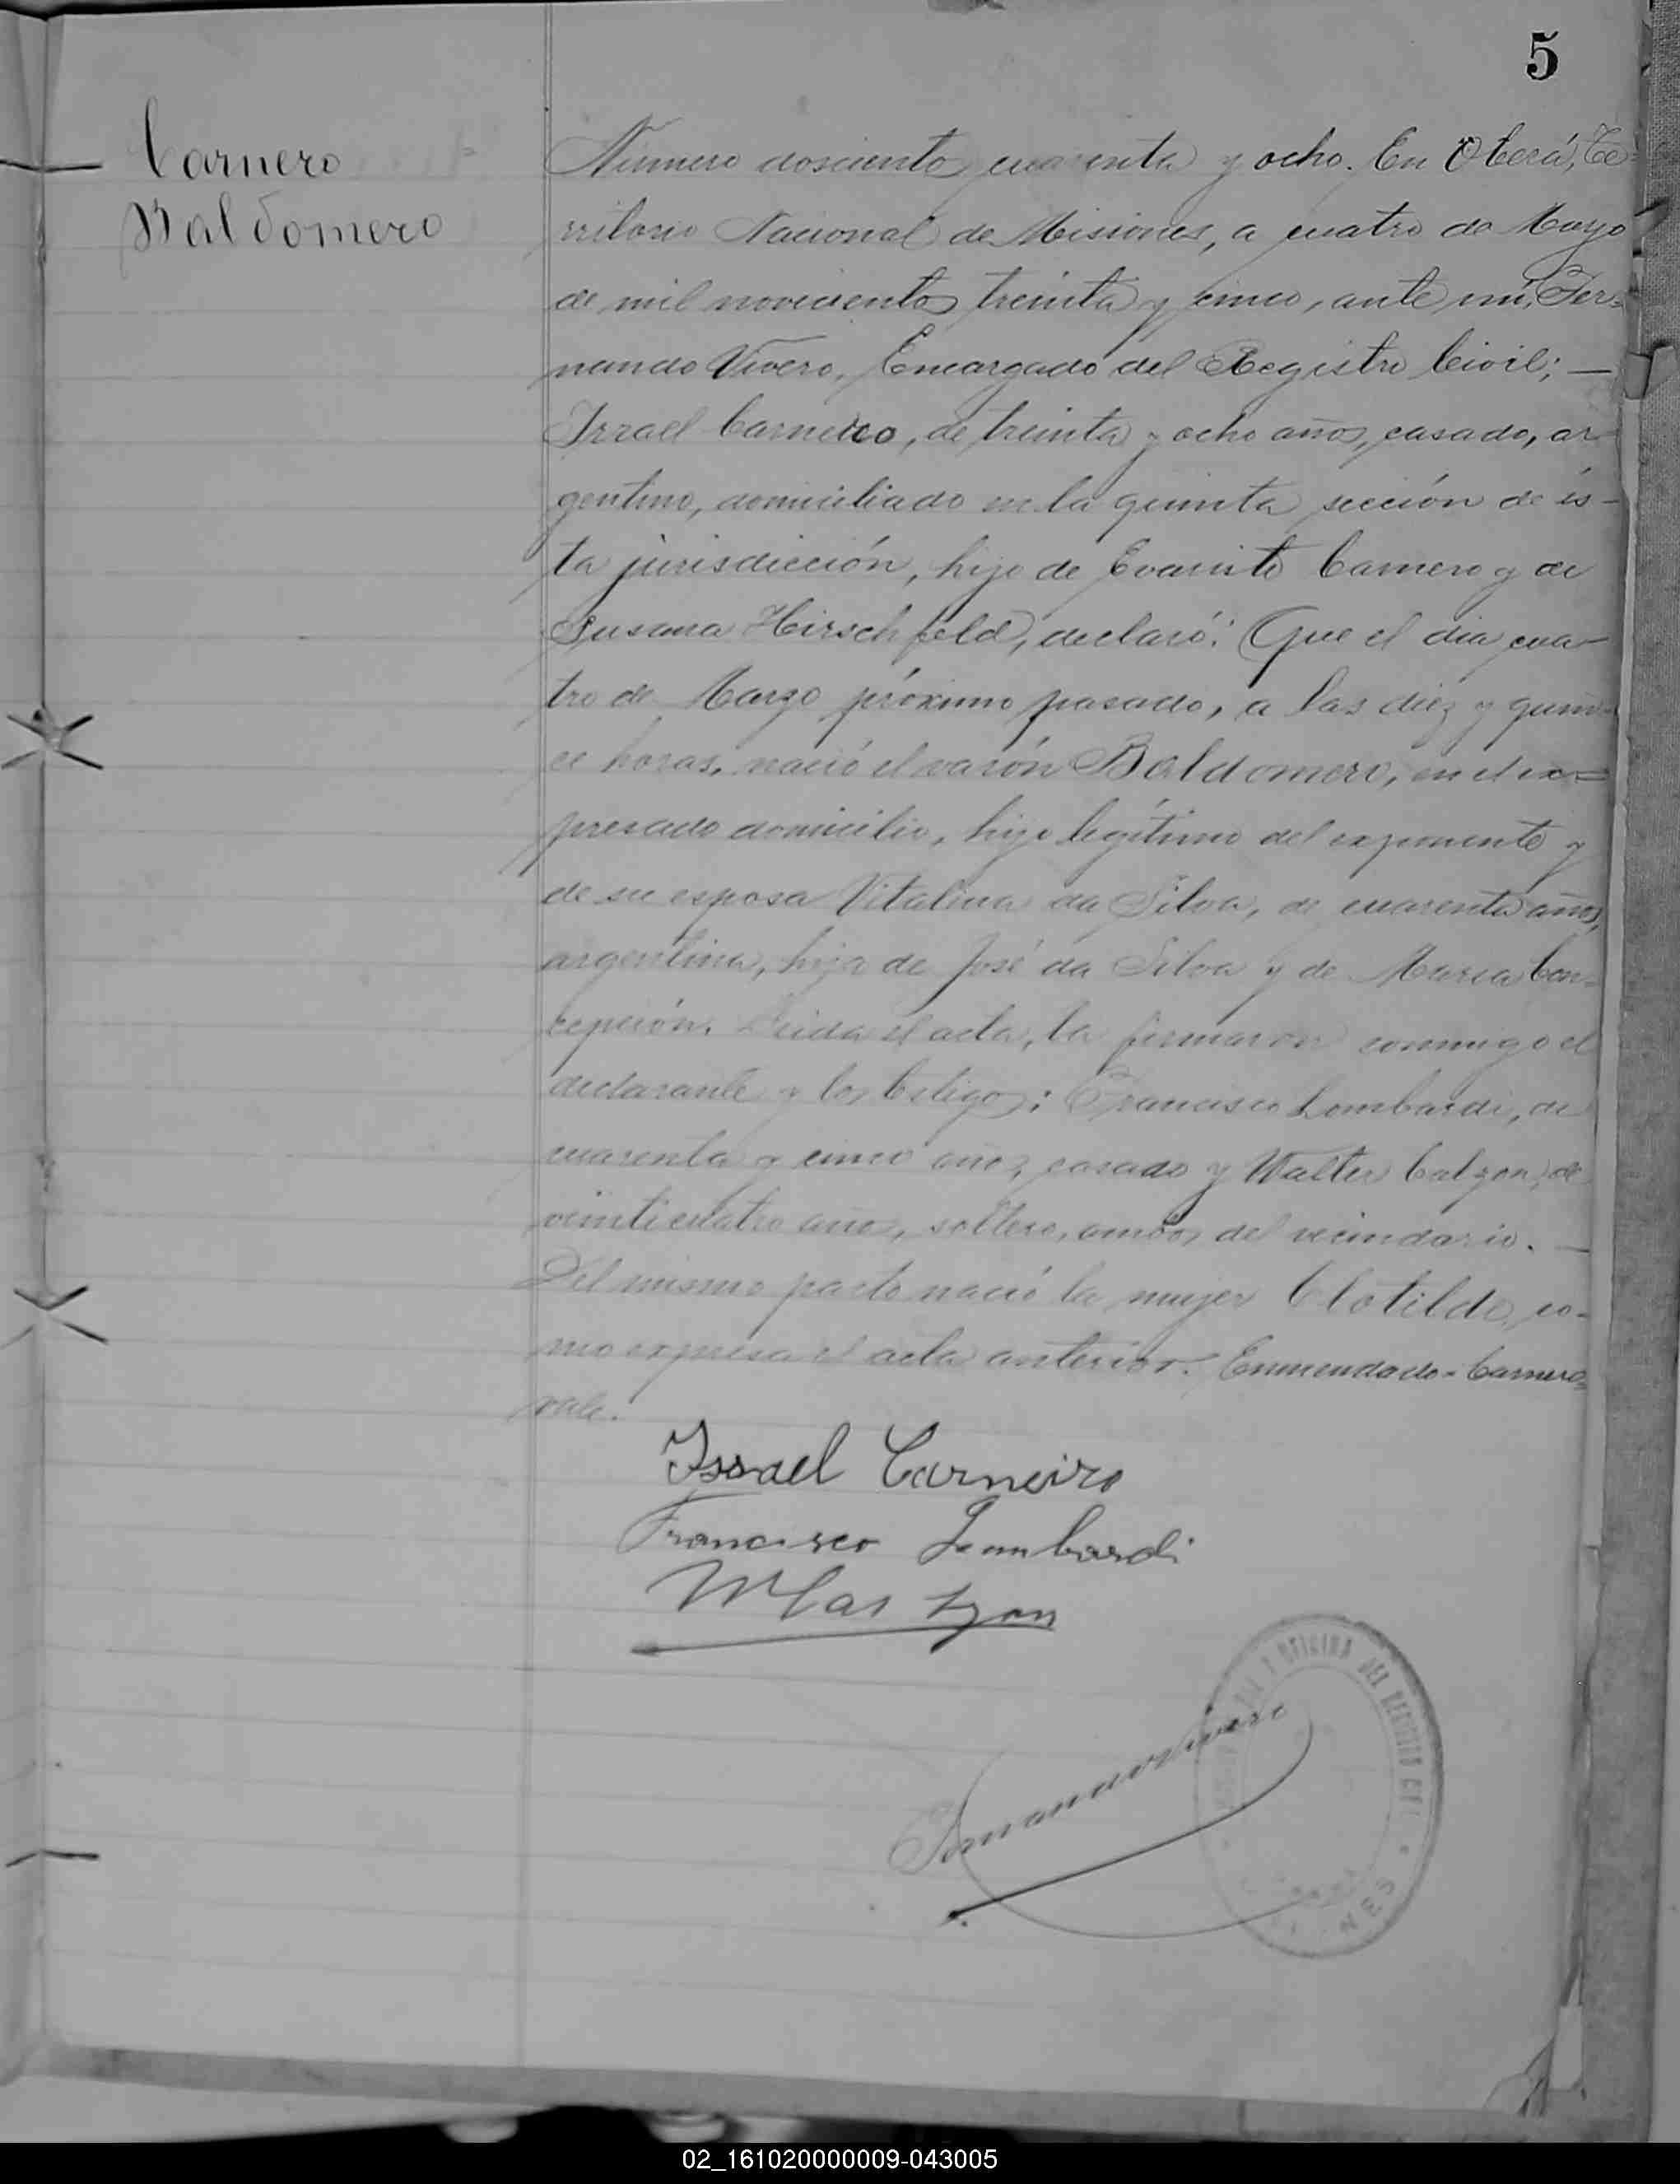 5
Carnero
Baldomero
Número doscientos cuarenta y ocho. En Oberá, Te=
rritorio Nacional de Misiones, a cuatro de Mayo
de mil novecientos treinta y cinco, ante mí, Fer=
nando Vivero, Encargado del Registro Civil; —
Israel Carnero, de treinta y ocho años, casado, ar-
gentino, domiciliado en la quinta sección de és-
ta jurisdicción, hijo de Evaristo Carnero y de
Susana Hirschfeld, declaró: Que el día cua-
tro de Marzo próximo pasado, a las diez y quin-
ce horas, nació el varón Baldomero, en el ex=
presado domicilio, hijo legítimo del exponente y
de su esposa Vitalina da Silva, de cuarenta años,
argentina, hija de José da Silva y de María Con=
cepción. Leida el acta, la firmaron conmigo el
declarante y los testigos: Francisco Lombardi, de
cuarenta y cinco años, casado y Walter de
veinticuatro años, soltero, ambos del vecindario. —
Del mismo parto nació la mujer Clotilde, co-
mo expresa el acta anterior. Enmendado-Carnero=
vale.
Issael Carneiro
Francisco Lombardi
Fernando Vivero
OFICINA DEL REGISTRO CIVIL
NES
02_161020000009-043005